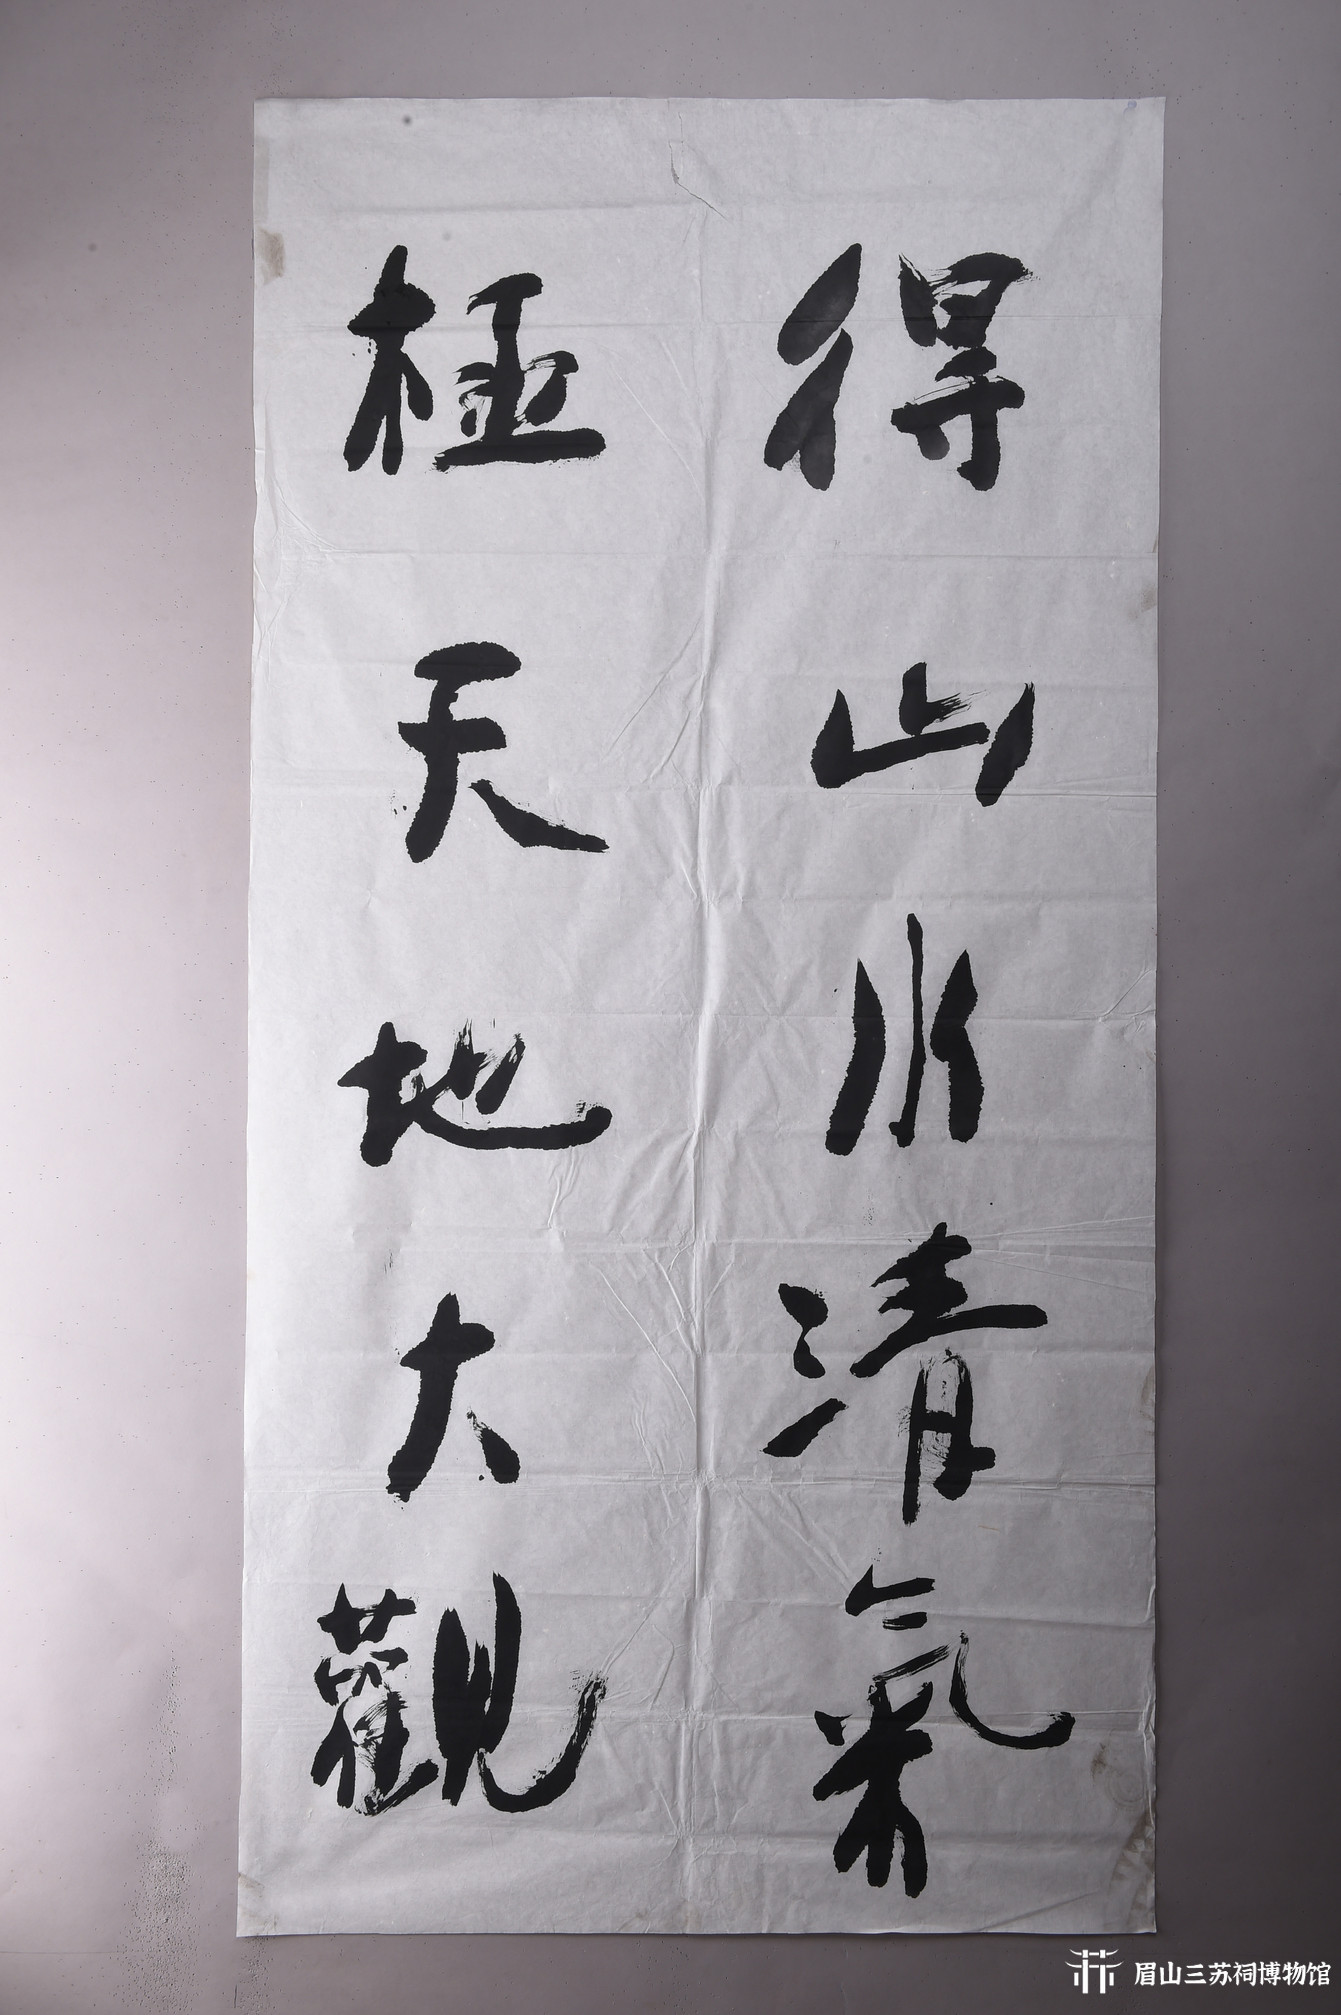 得山水清氣
極天地大觀
眉山三苏祠博物馆